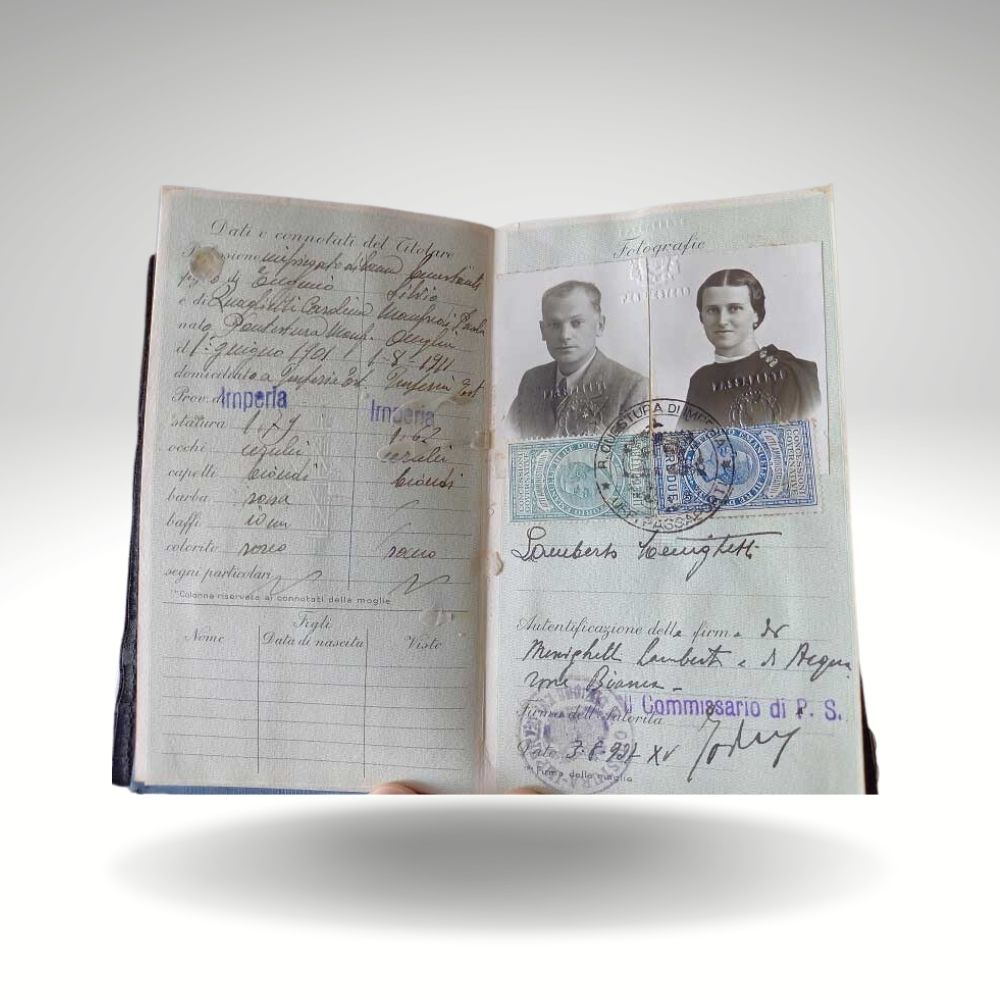 Dati e connotati del Titolare
Professione impiegato di banca casalinga
figlio di Eugenio Silvio
e di Quaglietti Carolina Manfredi Paola
nato Pontestura Monf.
il 1° giugno 1901 1-8-1911
domiciliato a Imperia
Prov. di Imperia Imperia
statura 1.79 1.62
occhi cerulei cerulei
capelli biondi biondi
barba rossa
baffi idem
colorito roseo roseo
segni particolari
(*) Colonna riservata ai connotati della moglie
Figli
Nome Data di nascita Visto
Fotografie
R. QUESTURA DI IMPERIA
UFF. PASSAPORTI
CONCESSIONI GOVERNATIVE
Lamberto Menighetti
Autentificazione della firma di
Menighetti Lamberto e di Acqua
rone Bianca
Il Commissario di P. S.
Firma dell'Autorità
Data 3.8.937 XV
(*) Firma della moglie